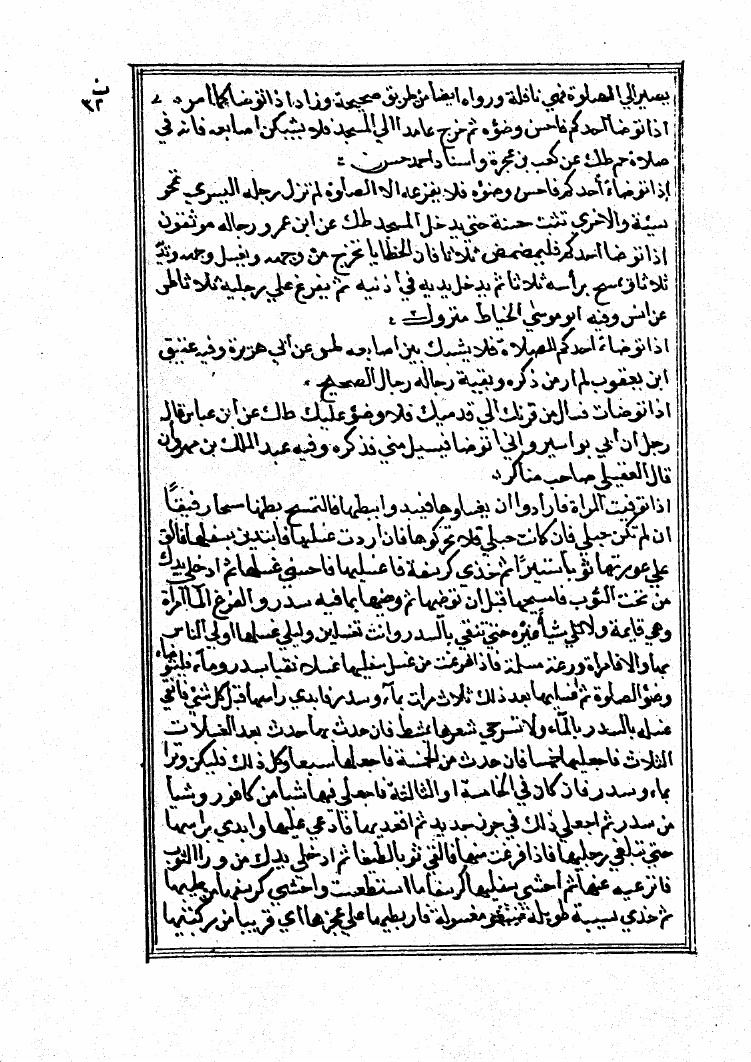 ن
٣٢
يصير الي الصلوة فهي نافلة ورواه ايضا من طريق صحيحة وزاد اذا توضا كما امر
اذا توضا احدكم فاحسن وضؤه ثم خرج عامدا الي المسجد فلا يشبكن اصابعه فانه في
صلاة حم طك عن كعب بن عجرة واسناد احمد حسن
إذا توضاء أحدكم فاحسن وضؤه فلا ينزعه الا الصلوة لم تزل رجله اليسري تمحو
سيئة والاخري تثبت حسنة حتي يدخل المسجد طك عن ابن عمر ورجاله موثقون
اذا توضا احدكم فليمضمض ثلاثا فان الخطايا تخرج من وجهه ويغسل وجهه ويديه
ثلاثا ويمسح برأسه ثلاثا ثم يدخل يديه في أذنيه ثم يفرغ علي رجليه ثلاثا طس
عن انس وفيه ابو موسي الخياط متروك
اذا توضاء احدكم للصلاة فلا يشبك بين اصابعه طس عن أبي هريرة وفيه عتيق
ابن يعقوب لم ار من ذكره وبقية رجاله رجال الصحيح
اذا توضات فسال من قرنك الي قدميك فلا وضؤ عليك طك عن ابن عباس قال
رجل ان بي بواسير واني اتوضا فيسيل مني فذكره وفيه عبد الملك بن مهران
قال العقيلي صاحب مناكير
اذا توفيت المراة فأرادوا ان يغسلوها فليبدوا ببطنها فالتمسح بطنها مسحا رفيقا
ان لم تكن حبلي فان كانت حبلي فلا تحركوها فان اردت غسلها فابتدئي بسفليها فالق
علي عورتها ثوبا ستيرا ثم خذي كرسفة فاغسليها فاحسني غسلها ثم ادخلي يدك
من تحت الثوب فامسحيها قبل ان توضيها ثم وضيها بما فيه سدر والتفرغ الما امراة
وهي قايمة ولا تلي شيأ غيره حتي تنقي بالسدر وانت تغسلين وليلي غسلها اولي الناس
بها والا فامراة ورعة مسلمة فاذا فرغت من غسل سفليها غسلا نقيا بسدر وماء فلتوضاء
وضؤ الصلوة ثم تغسليها بعد ذلك ثلاث مرات بماء وسدر فابدي راسها قبل كل شئ فانقي
غسله بالسدر بالماء ولا تسرحي شعرها بمشط فان حدث بها حدث بعد الغسلات
الثلاث فاجعليها خمسا فان حدث من الخمسة فاجعلها سبعا وكل ذلك فليكن وترا
بماء وسدر فان كان في الخامسة او الثالثة فاجعلي فيها شيا من كافور وشيأ
من سدر ثم اجعلي ذلك في جرن جديد ثم اقعديها فافرغي عليها وابدي براسها
حتي تبلغي رجليها فاذا فرغت منها فالقي ثوبا لطيفا ثم ادخلي يدك من ورا الثوب
فانزعيه عنها ثم أحشي سفليها كرسفا ما استطعت واحشي كرسفها من طيبها
ثم خذي سبيبة طويلة مغسولة فاربطيها علي عجزها اي قريبا من ركبتيها